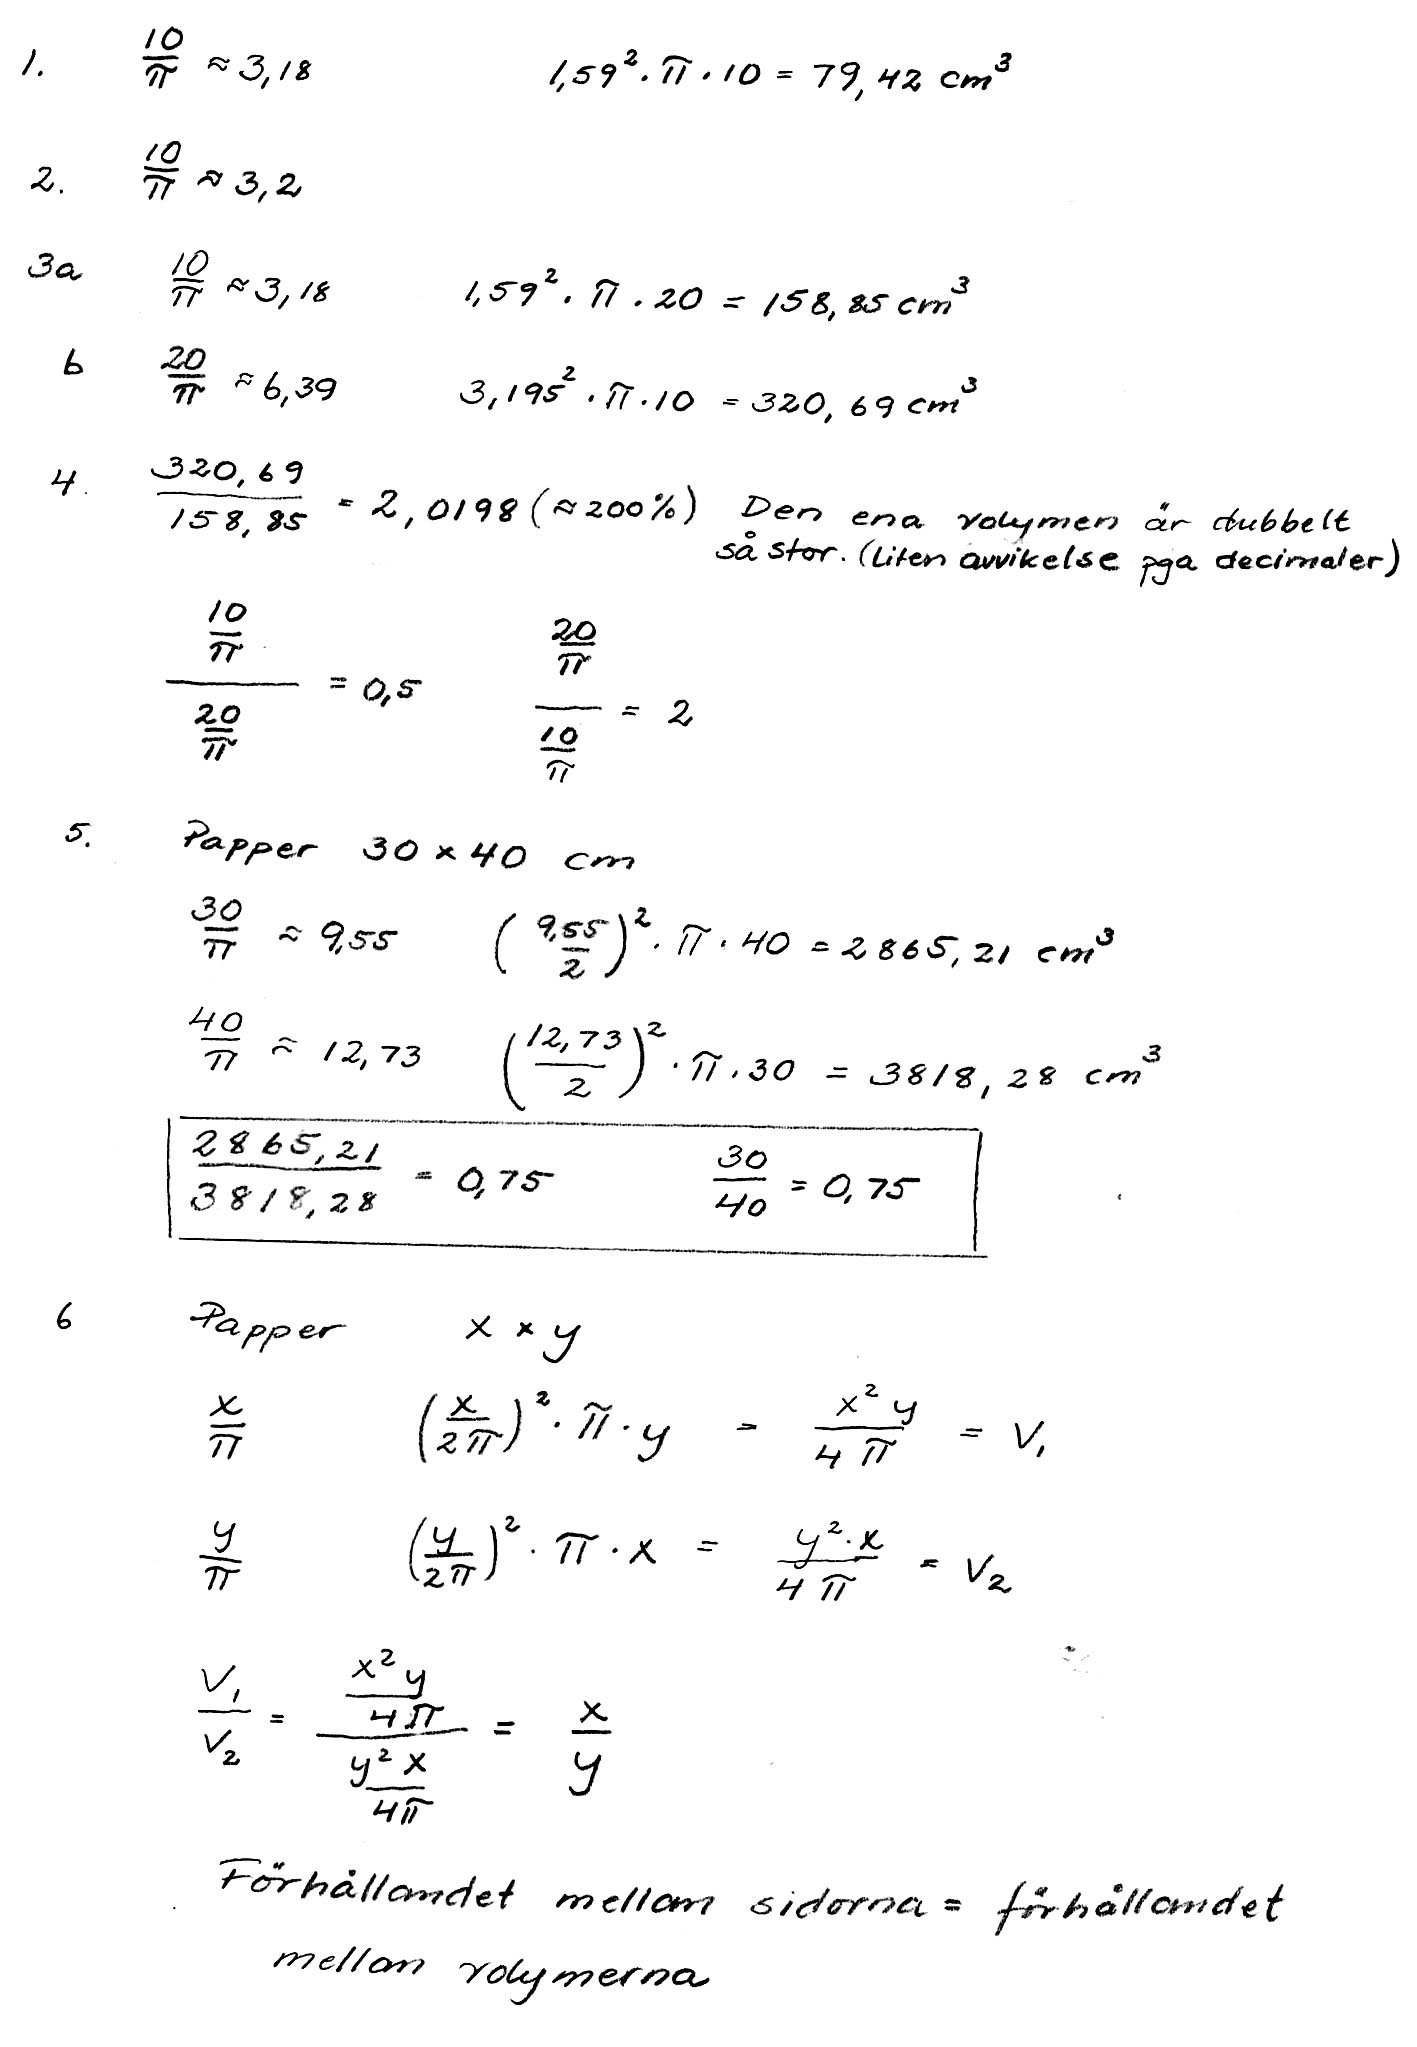 1. 10/π ≈ 3,18 1,59²·π·10 = 79,42 cm³
2. 10/π ≈ 3,2
3a 10/π ≈ 3,18 1,59²·π·20 = 158,85 cm³
b 20/π ≈ 6,39 3,195²·π·10 = 320,69 cm³
4. 320,69/158,85 = 2,0198 (≈200%) Den ena volymen är dubbelt
så stor. (Liten avvikelse pga decimaler)
(10/π)/(20/π) = 0,5 (20/π)/(10/π) = 2
5. Papper 30 × 40 cm
30/π ≈ 9,55 (9,55/2)²·π·40 = 2865,21 cm³
40/π ≈ 12,73 (12,73/2)²·π·30 = 3818,28 cm³
2865,21/3818,28 = 0,75 30/40 = 0,75
6 Papper x × y
x/π (x/2π)²·π·y = x²y/4π = V₁
y/π (y/2π)²·π·x = y²·x/4π = V₂
V₁/V₂ = (x²y/4π)/(y²x/4π) = x/y
Förhållandet mellan sidorna = förhållandet
mellan volymerna